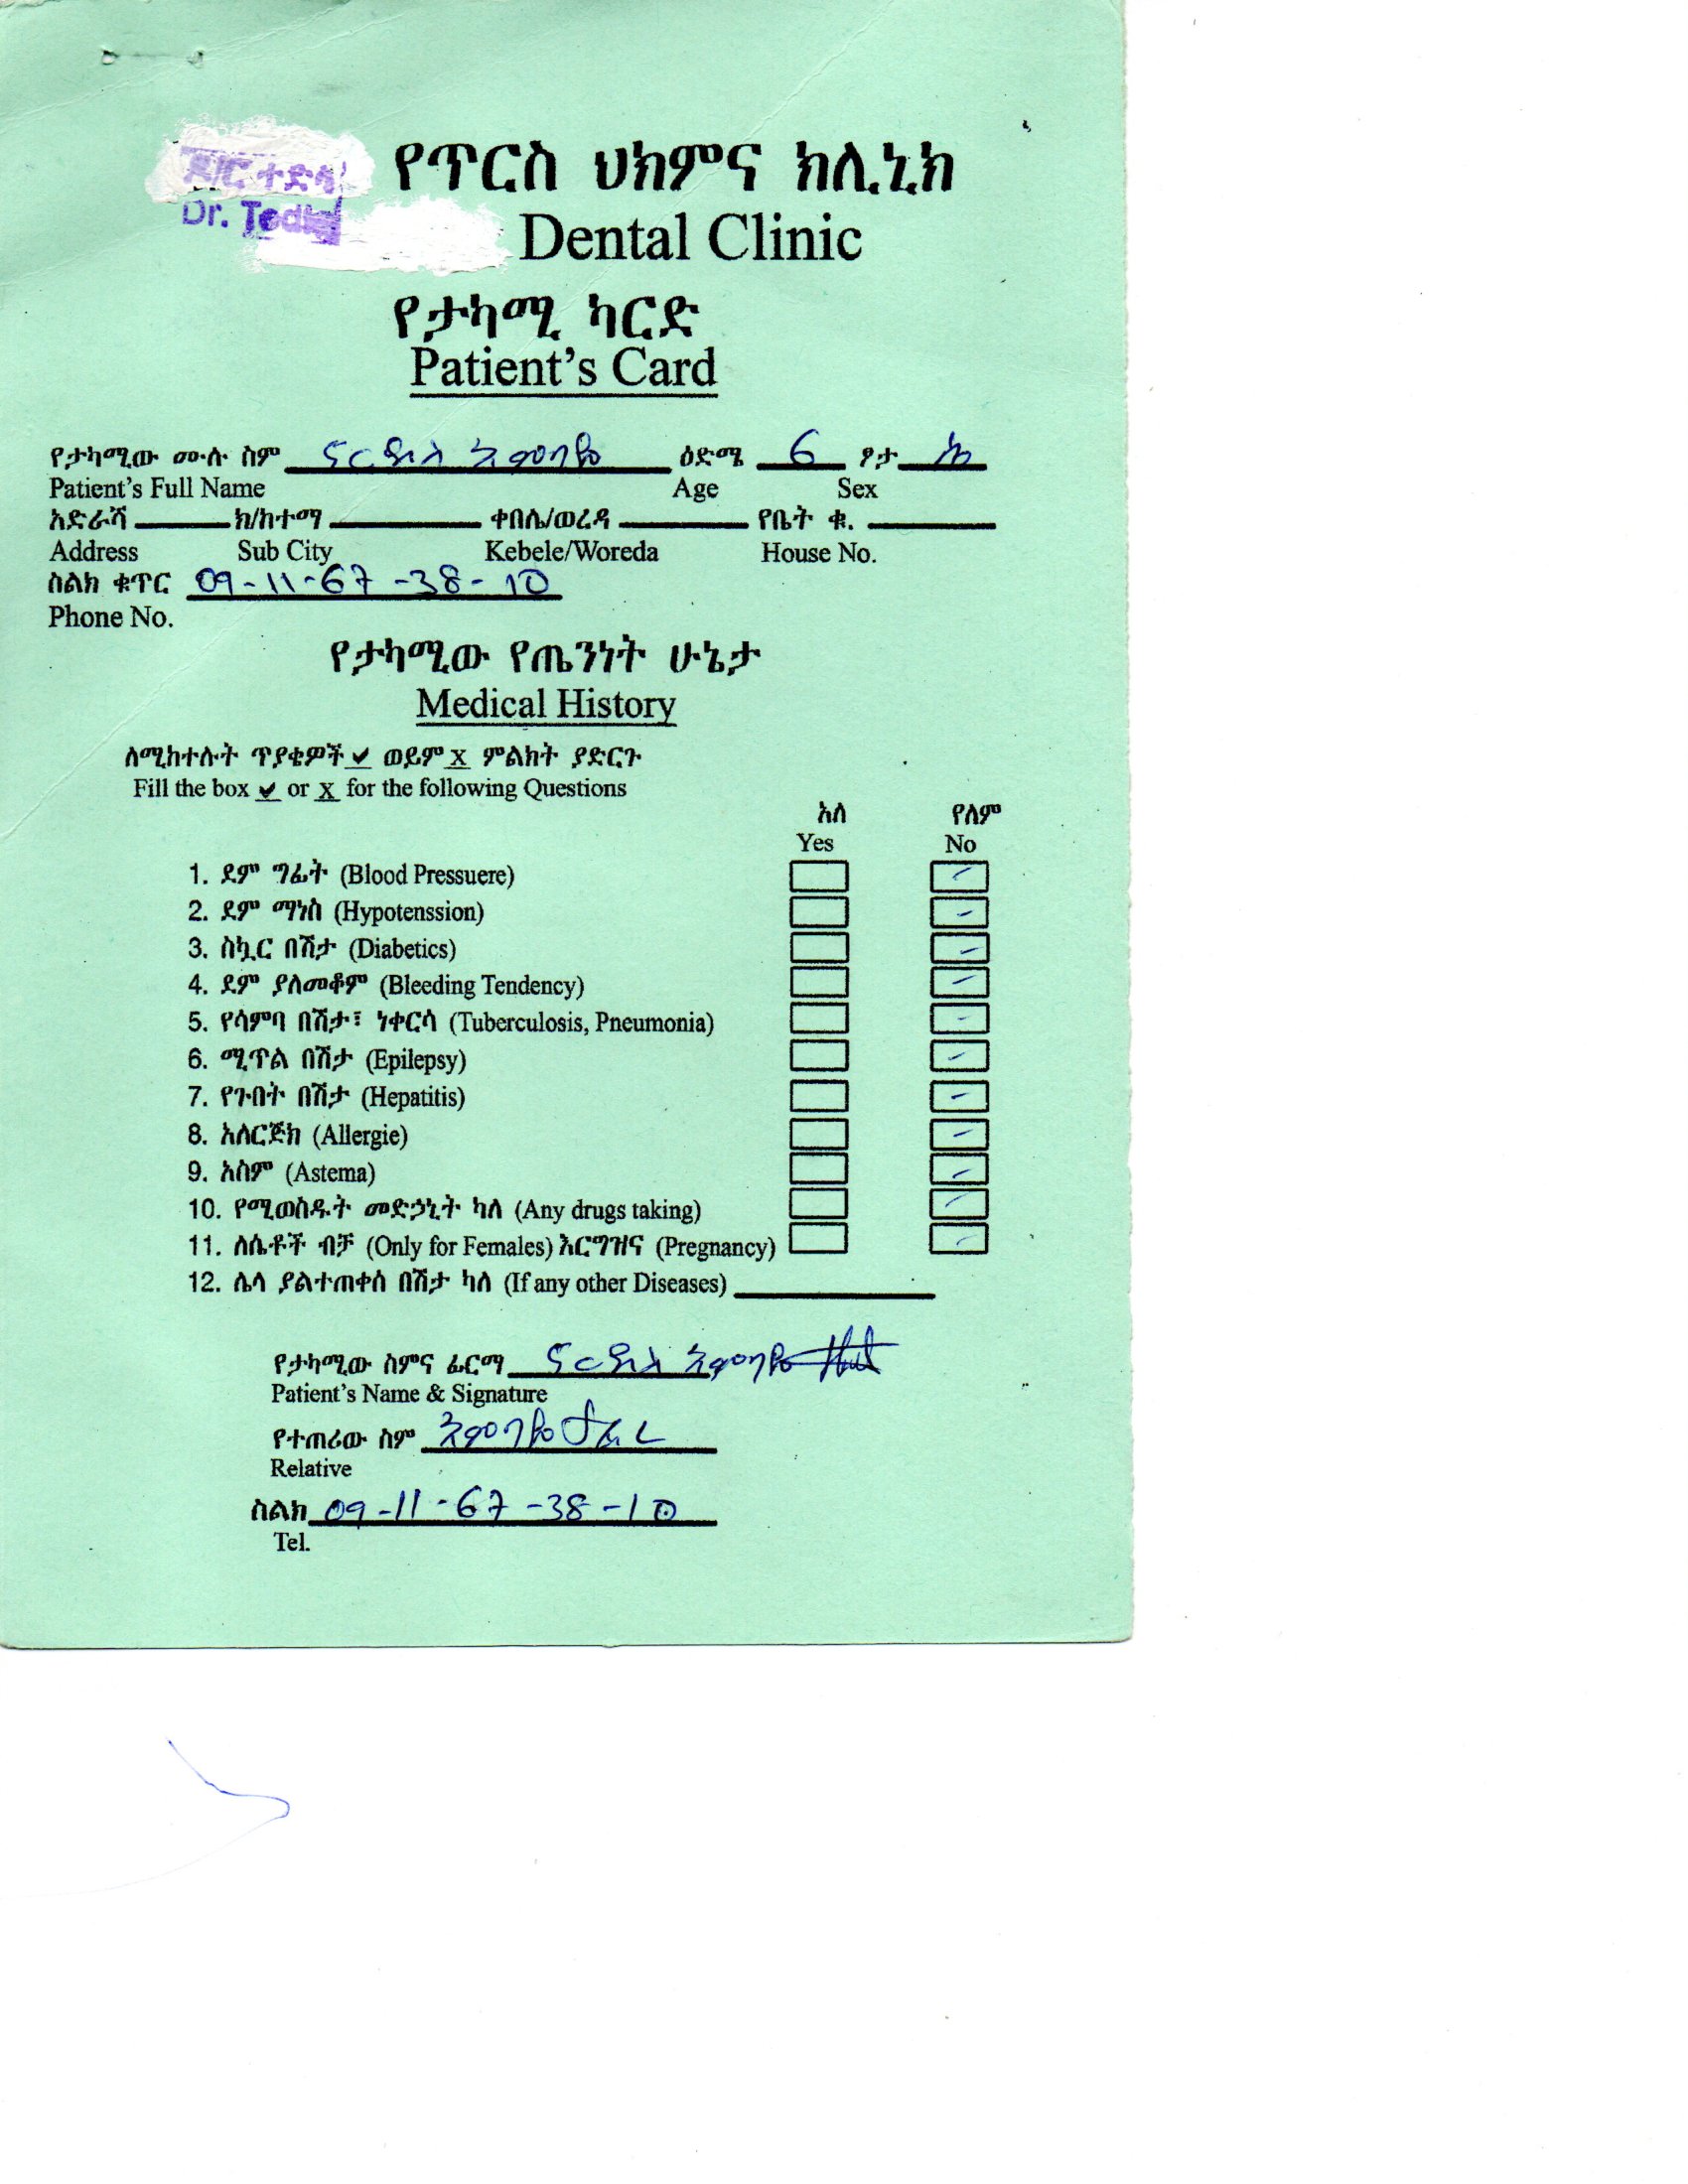 ዶ/ር ተድላ የጥርስ ህክምና ክሊኒክ
Dr. Tedla Dental Clinic
የታካሚ ካርድ
Patient's Card
የታካሚው ሙሉ ስም ናርዶስ እምባዬ ዕድሜ 6 ፆታ
Patient's Full Name Age Sex
አድራሻ ክ/ከተማ ቀበሌ/ወረዳ የቤት ቁ.
Address Sub City Kebele/Woreda House No.
ስልክ ቁጥር 09-11-67-38-10
Phone No.
የታካሚው የጤንነት ሁኔታ
Medical History
ለሚከተሉት ጥያቄዎች ✓ ወይም X ምልክት ያድርጉ
Fill the box ✓ or X for the following Questions
አለ የለም
Yes No
1. ደም ግፊት (Blood Pressuere)
2. ደም ማነስ (Hypotenssion)
3. ስኳር በሽታ (Diabetics)
4. ደም ያለመቆም (Bleeding Tendency)
5. የሳምባ በሽታ፣ ነቀርሳ (Tuberculosis, Pneumonia)
6. ሚጥል በሽታ (Epilepsy)
7. የጉበት በሽታ (Hepatitis)
8. አለርጅክ (Allergie)
9. አስም (Astema)
10. የሚወስዱት መድኃኒት ካለ (Any drugs taking)
11. ለሴቶች ብቻ (Only for Females) እርግዝና (Pregnancy)
12. ሌላ ያልተጠቀሰ በሽታ ካለ (If any other Diseases)
የታካሚው ስምና ፊርማ ናርዶስ እምባዬ
Patient's Name & Signature
የተጠሪው ስም እምባዬ
Relative
ስልክ 09-11-67-38-10
Tel.